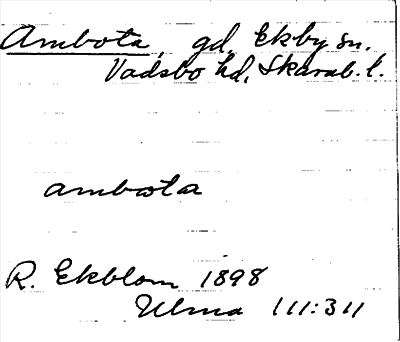 Ambota, gd, Ekby sn.
Vadsbo hd, Skarab. l.
ambota
R. Ekblom 1898
Ulma 111:311